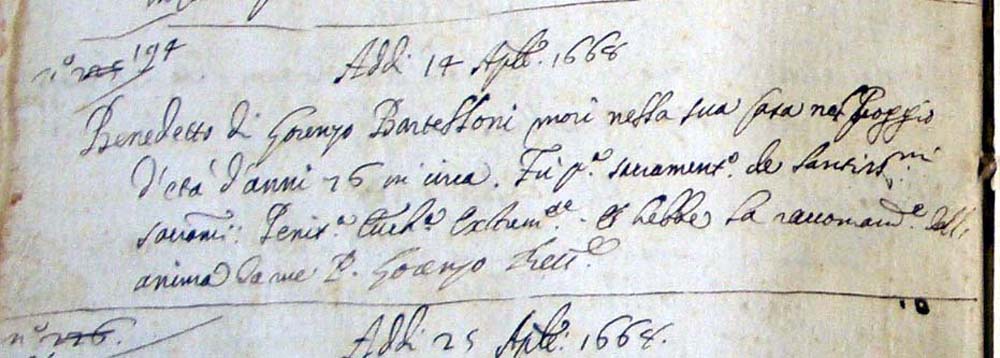 n.º 194
Addi 14 Aple. 1668
Benedetto di Lorenzo Bartelloni morì nella sua Casa nel Poggio
d'età d'anni 26 in circa. Fu p.ª sacrament.º de santiss.mi
sacram.: Penit.ª Euch.ª Extrem. et hebbe la raccomand.e dell
anima da me P. Lorenzo Rett.e
n.º 226.
Addi 25 Aple. 1668.